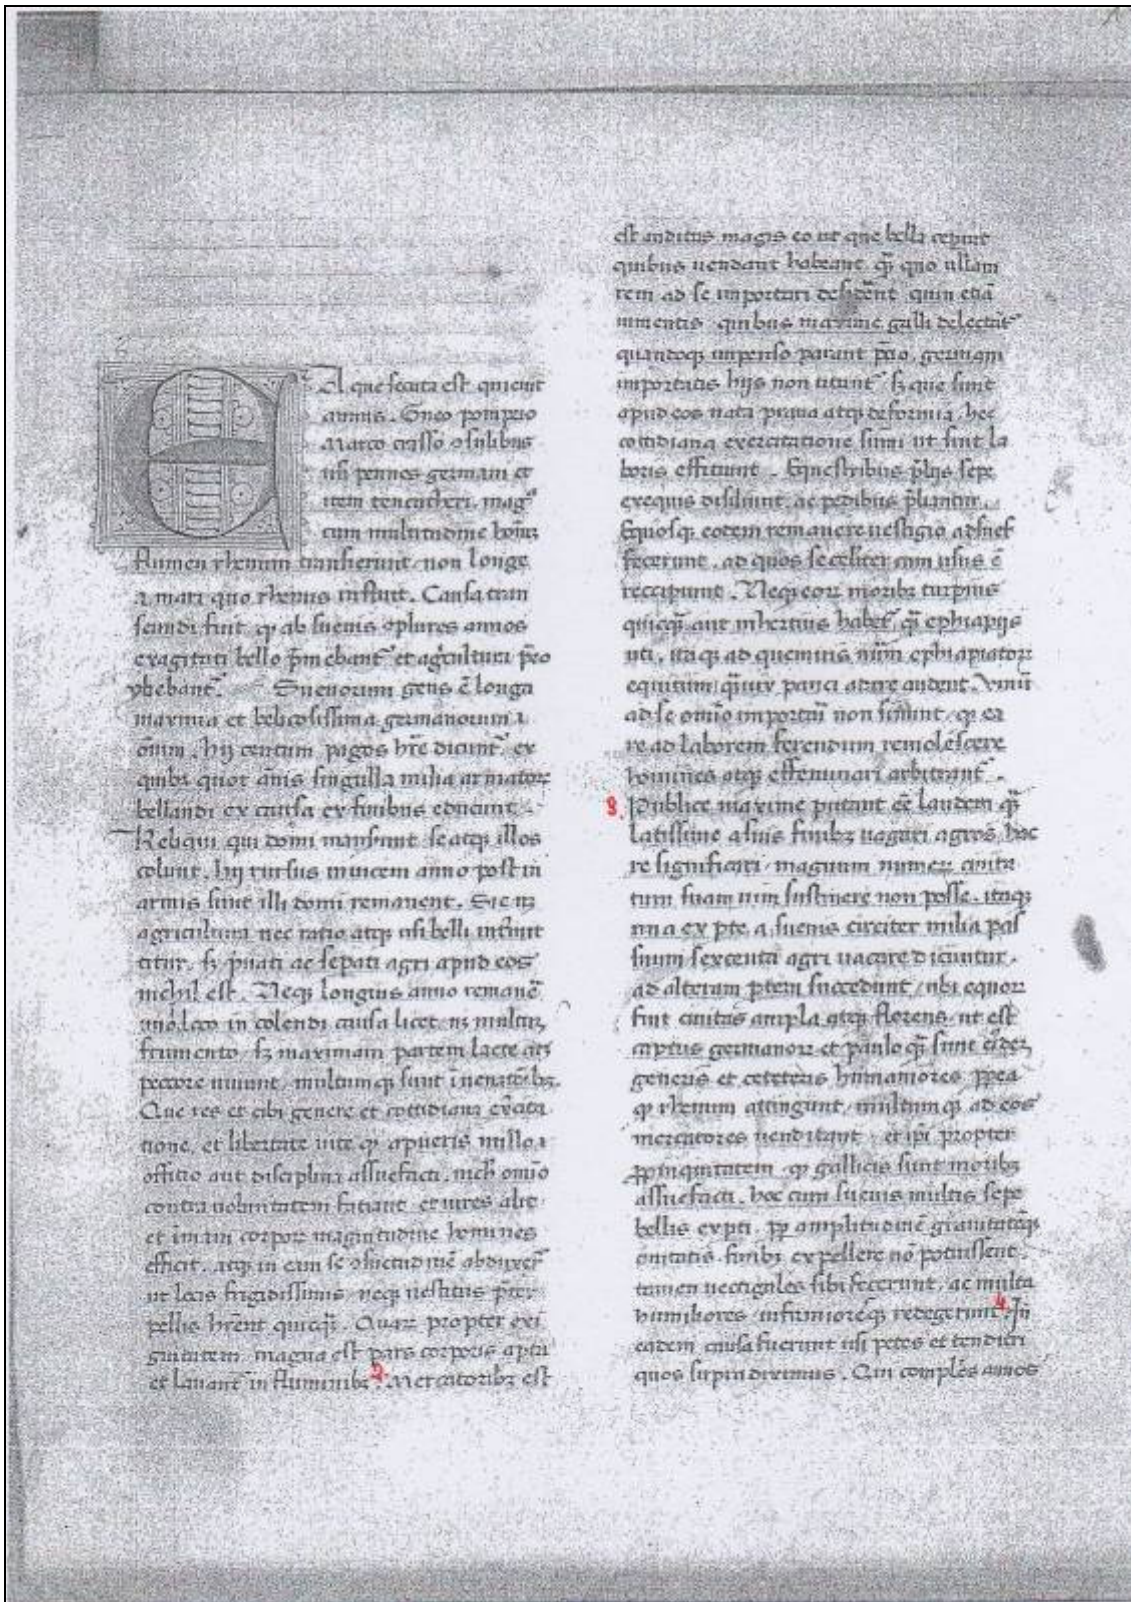 EA que secuta est qui erit
annus. Gneo pompeio
Marco crasso ɔsulibus
usi pennes germani et
item tencutheri. magͣ
cum multitudine hoīuꝫ
flumen rhenum transierunt, non longe
a mari quo rhenus influit. Causa tran
seundi fuit, qꝫ ab sueuis ɔplures annos
exagitati bello p̄mebantᷣ et ag̓cultura p̄eo
ꝓhibebantᷣ. Sueuorum gens ē longa
maxima et bellicosissima germanorum
oīum. hij centum pagos hr̄e dicuntᷣ, ex
quibꝫ quot ānis singulla milia armatoꝝ
bellandi ex causa ex finibus educunt.
Reliqui qui domi manserint se atqꝫ illos
colunt. hij rursus inuicem anno post in
armis sunt illi domi remanent. Sic nꝫ
agricultura nec ratio atqꝫ usi belli intermit
titur, sꝫ p̓uati ac sepati agri apud eos
nichil est. Neqꝫ longius anno remanē
uno loco in colendi causa licet, nꝫ multuꝫ
frumento, sꝫ maximam partem lacte atqꝫ
peccore uiuunt, multumqꝫ sunt ī uenatōibꝫ.
Que res et cibi genere et cottidiana ex̓cita
tione, et libertate uite qꝫ a pueris nullo
offitio aut disciplina assuefacti. nich̄ omīo
contra uoluntatem fatiant et uires alit
et imani corporꝫ magnitudine homines
efficit. atqꝫ in eam se ɔsuetudinē abduxerᷣ
ut locis frigidissimis, neqꝫ uestitus p̄ter
pellis hr̄ent quicqꝫ̄. Quaꝝ propter exi
guitatem, magna est pars corporis apta
et lauantᷣ in fluminibꝫ. 2 Mercatoribꝫ est
est anditus magis eo ut que bella cepint
quibus uendant habeant, qꝫ̄ quo ullam
rem ad se importari desid̓ent, quin etiā
iumentis quibus maxime galli delectātᷣ
quandoqꝫ impenso parant p̄cio, germani
importatis hijs non utuntᷣ, sꝫ que sunt
apud eos nata praua atqꝫ deformia, hec
cottidiana exercitatione sum̄i ut sint la
boris effitiunt. Equestribus p̄lijs sepe
ex equis disiliunt, ac pedibus p̄liantur.
Equosqꝫ eotem remanere uestigio adsuef
fecerunt, ad quos se celit̓er cum usus ē
reccipiunt. Neqꝫ eoꝝ moribꝫ turpius
quicqꝫ̄ aut inhertius habetᷣ qꝫ̄ ephiapijs
uti, itaqꝫ ad quemuis num̄ ephiapiatoꝝ
equitum qꝫ̄uix pauci adire audent. Vinū
ad se omīo importari non sinunt, qꝫ ea
re ad laborem ferendum remolescere
homines atqꝫ effeminari arbitrantᷣ.
3. Publice maxime putant eē laudem qꝫ̄
latissime a suis finibꝫ uagari agros, hac
re significari magnum numeꝝ ciuita
tum suam uim sustinere non posse. itaqꝫ
una ex pte a sueuis circiter milia pas
suum sexcenta agri uacare dicuntur.
ad alteram ptem succedunt, ubi equoꝝ
fuit ciuitas ampla atqꝫ florens, ut est
captus germanoꝝ et paulo qꝫ̄ sunt eiꝰdeꝫ
generis et ceteris humaniores ꝓpea
qꝫ rhenum attingunt, multumqꝫ ad eos
mercatores uenditant, et ip̄i propter
ꝓpinquitatem, qꝫ gallicis sunt moribꝫ
assuefacti. hoc cum sueuis multis sepe
bellis expti, pp amplitudinē grauitatēqꝫ
ciuitatis finibꝫ expellere nō potuissent.
tamen uectigales sibi fecerunt, ac multa
humiliores infirmioresqꝫ redegerunt. 4 In
eadem causa fuerunt usi petes et tendicri
quos supra diximus. Qui complēs annos